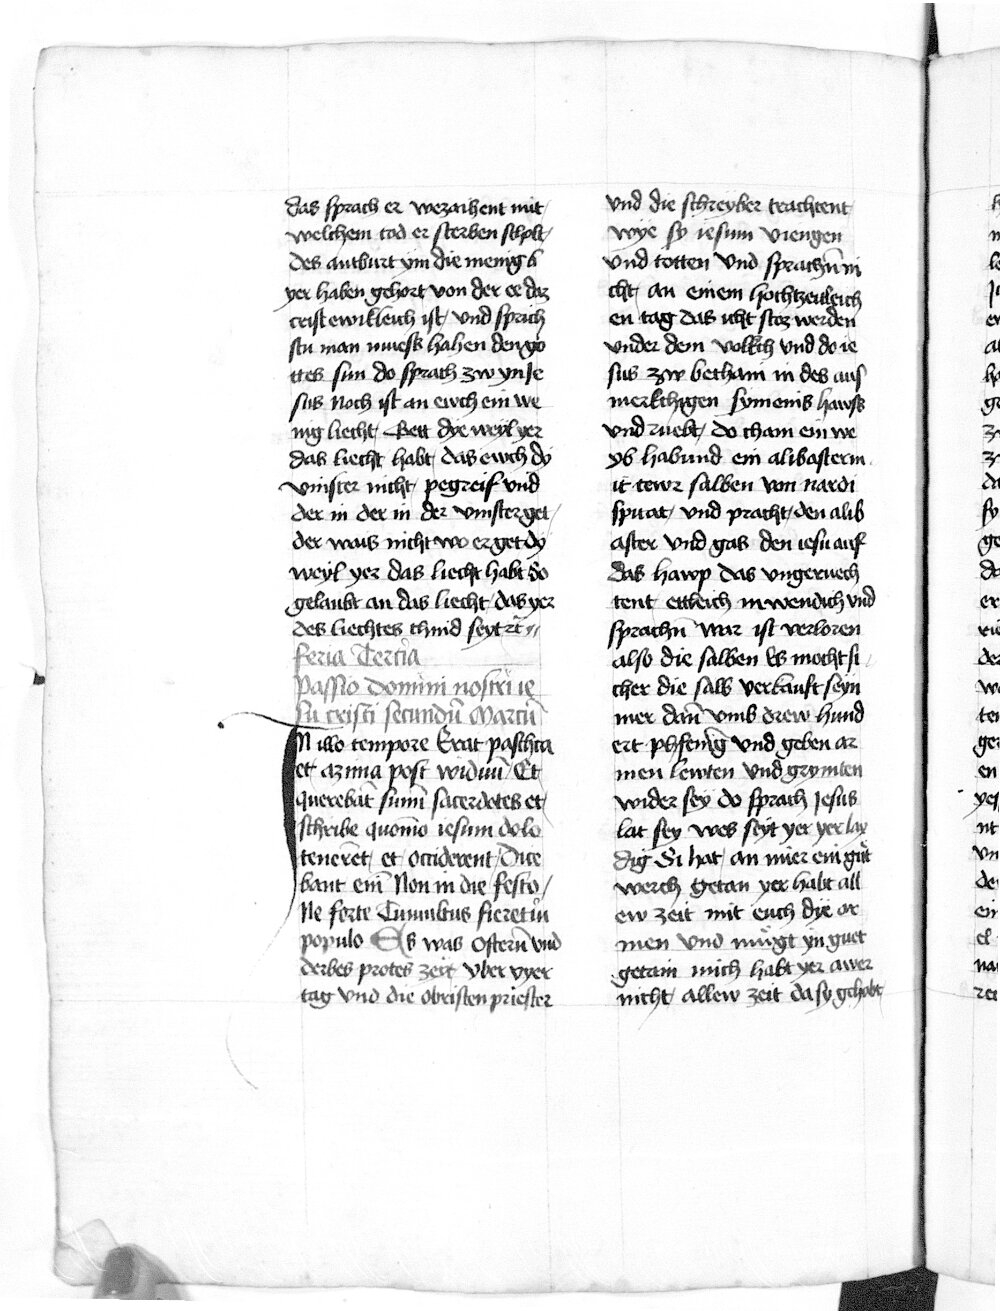 das sprach er wezaihent mit
welchem tod er sterben scholt
des antburt ym die menig a
yer haben gehort von der ee daz
crist ewikleich ist und sprich
stu man muess hahen den go
ttes sun do sprach zw yn Je
sus Noch ist an ewch ein we
nig liecht Gett dye weyl yer
das liecht habt das ewch dy
vinster nicht pegreif und
der in der in der vinster get
der wais nicht wo er get dy
weyl yer das liecht habt So
gelaubt an das liecht das yer
des liechtes chind seyt rc̄
feria Tercia
Passio domini nostri ie
su cristi secundū Marcū
In illo tempore Erat pascha
et azima post biduū Et
querebāt sum̄i sacerdotes et
scribe quom̄o iesum dolo
tenerēt et occiderent Dice
bant em̄ Non in die festo
Ne forte Tumultus fieret in
populo Es was Ostern̄ und
derbes protes zeit uber uyer
tag Und die obristen priester
und die schreyber trachtent
wye sy iesum viengen
und totten Und sprachn̄ ni
cht an einem hochtzeitleich
en tag das icht stoz werden
under dem volkch und do ie
sus zw bethani in des aus
merkchigen symonis hawss
und ruebt do cham ein we
yb habund ein alibaster m
it tewr salben von nardi
spicat und pracht den alib
aster und gas den iesu auf
das hawp das ungeruech
tent ettleich inwendich und
sprachn̄ war ist verloren
also die salben Es mocht si
cher die salb verkauft seyn
mer dan̄ umb drew hund
ert phfenig und geben ar
men lewten und grymten
wider sey do sprach Jesus
lat sey wes seyt yer yer lay
dig Si hat an mier ein gut
werch getan yer habt all
ew zeit mit euch dye ar
men und mugt yn guet
getain mich habt yer awer
nicht allew zeit da sy gehabt